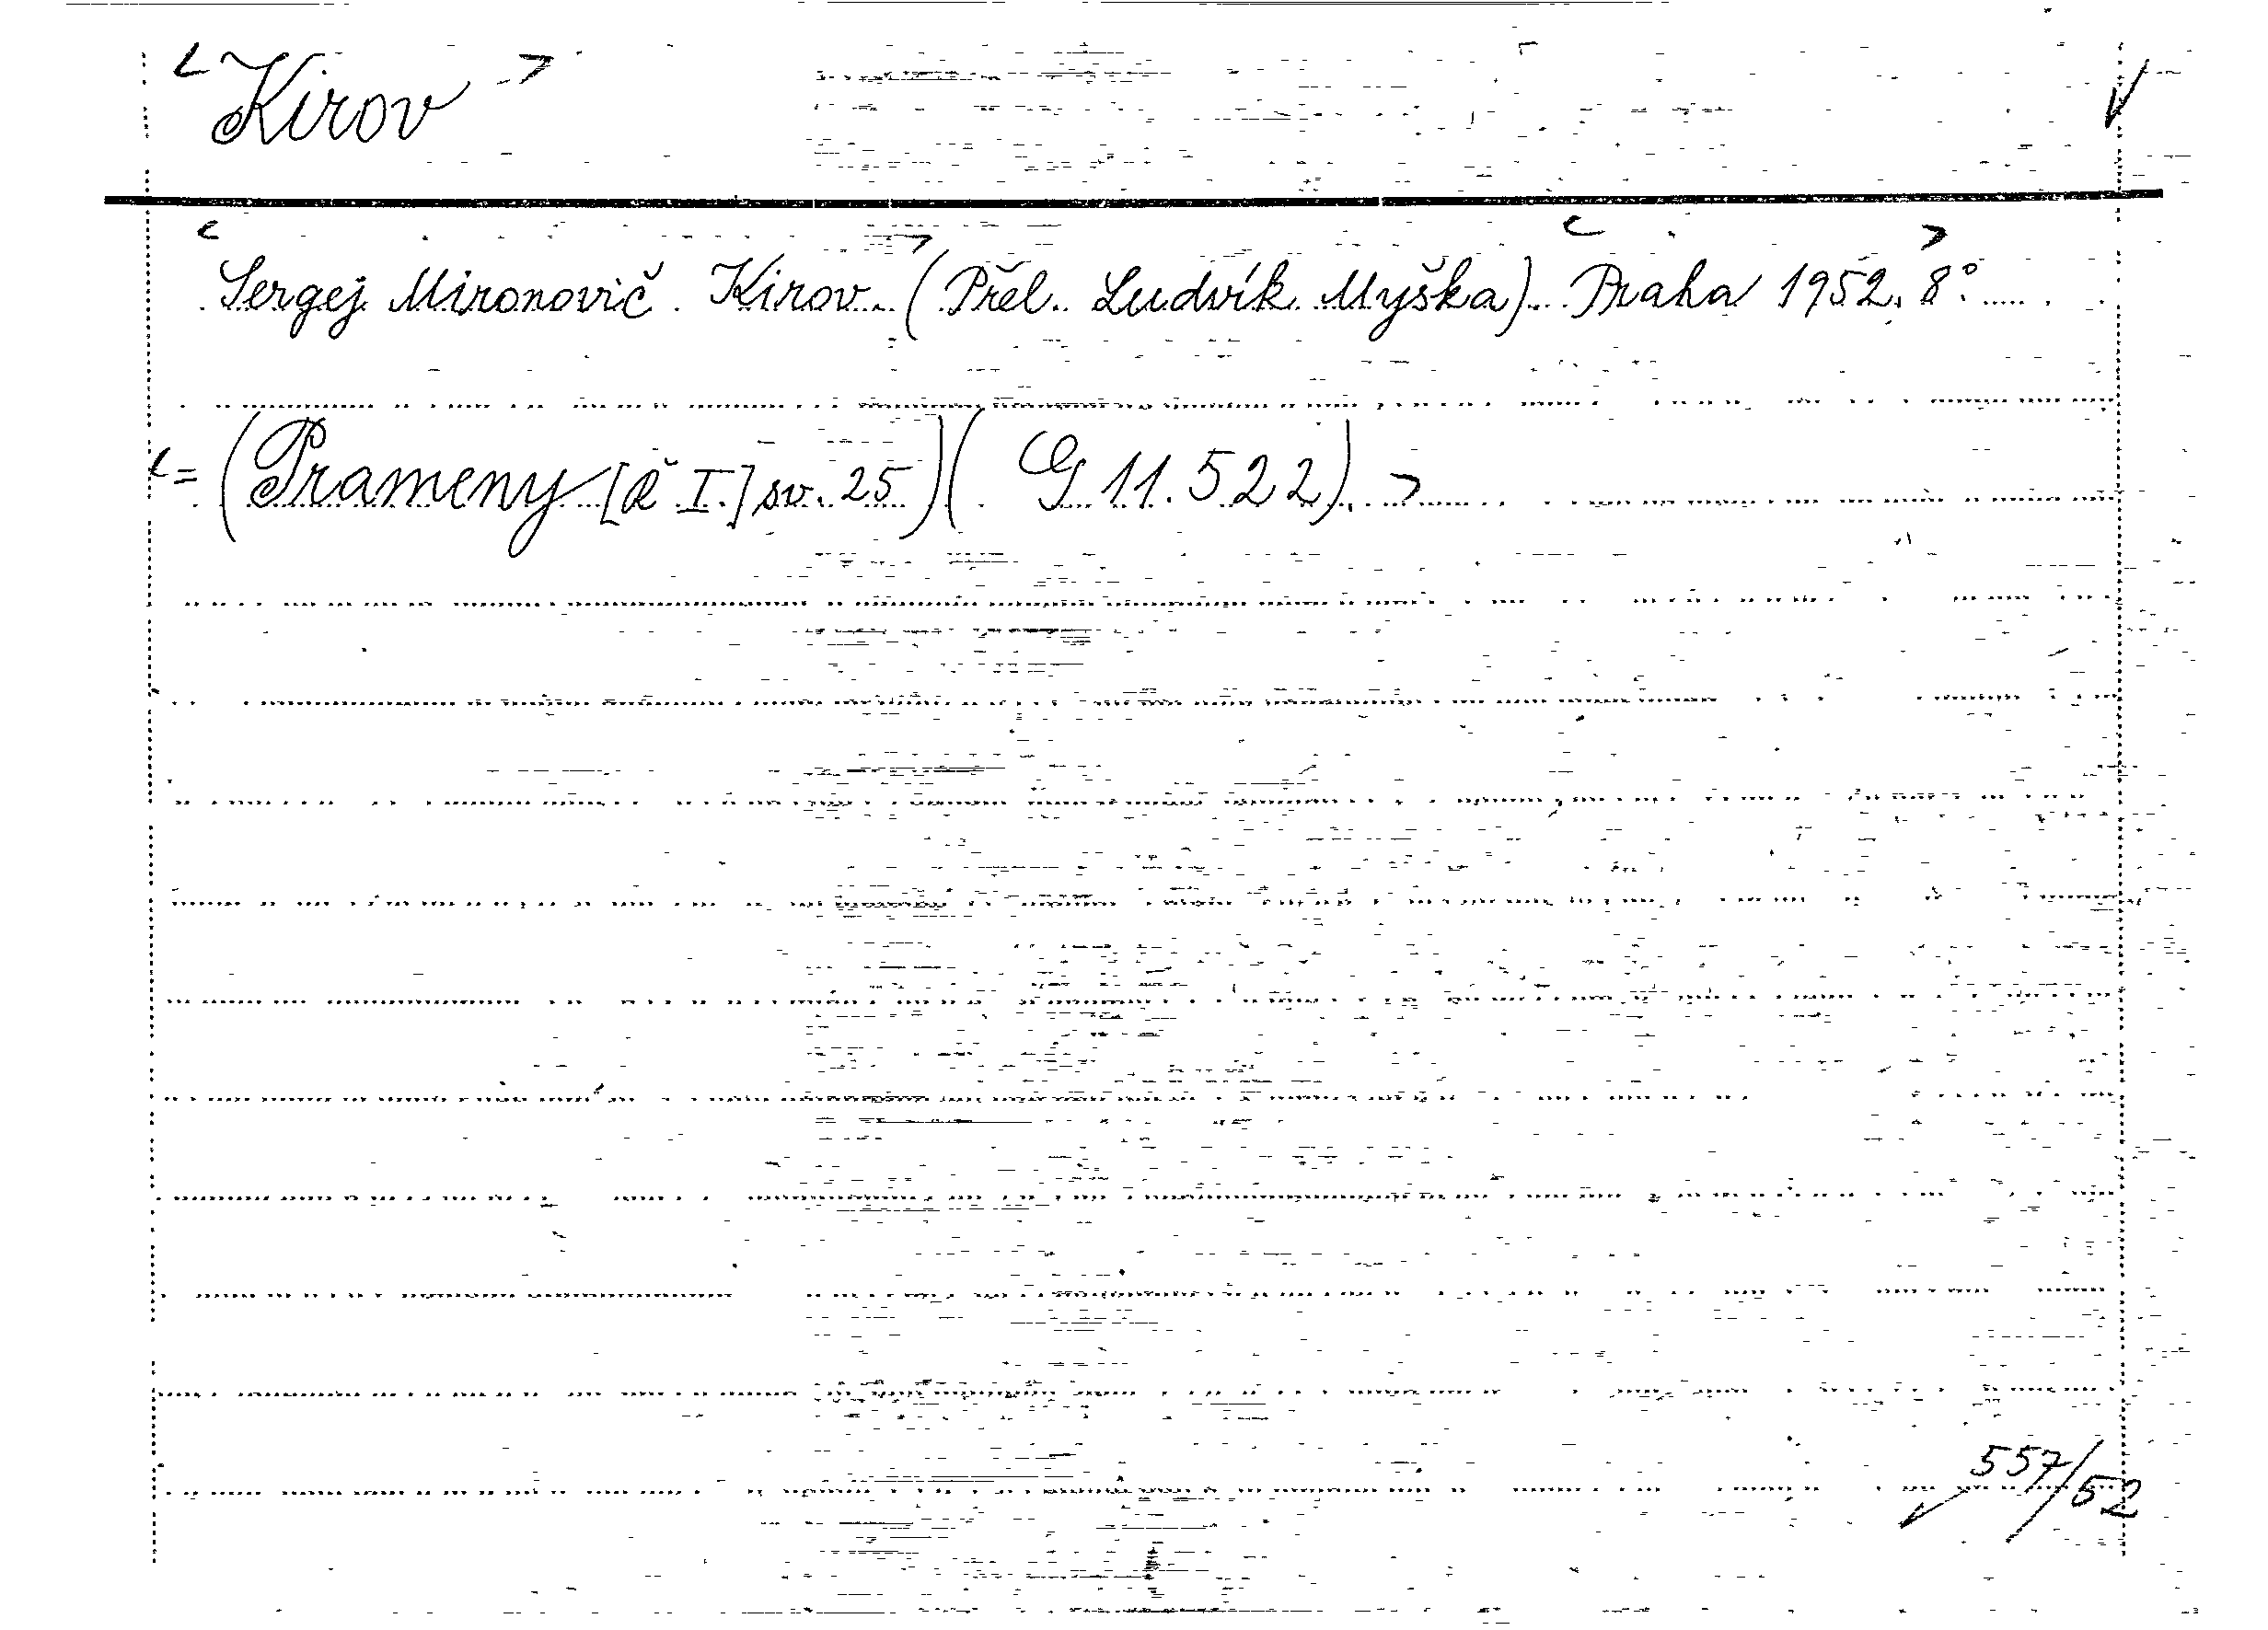 < Kirov >
< Sergej Mironovič Kirov > (Přel. Ludvík Myška) < Praha 1952. > 8°
< = (Prameny [Ř I.] sv. 25) ( G 11.522). >
557/52